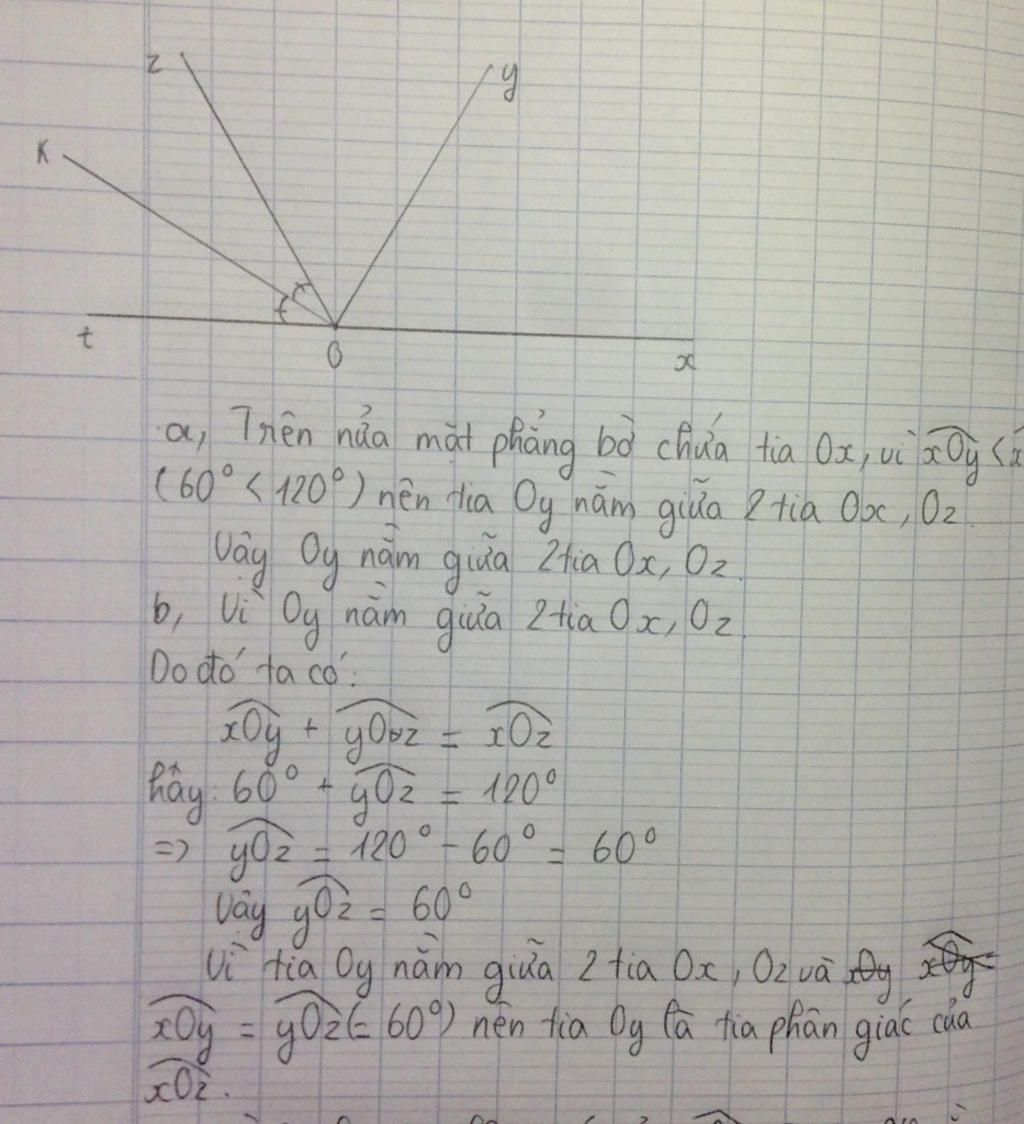 z
y
K
t
O
x
a, Trên nửa mặt phẳng bờ chứa tia Ox, vì xOy < x
(60° < 120°) nên tia Oy nằm giữa 2 tia Ox, Oz.
Vậy Oy nằm giữa 2 tia Ox, Oz.
b, Vì Oy nằm giữa 2 tia Ox, Oz.
Do đó ta có:
xOy + yOz = xOz
hây: 60° + yOz = 120°
=> yOz = 120° - 60° = 60°
Vậy yOz = 60°
Vì tia Oy nằm giữa 2 tia Ox, Oz và xOy xOy=
xOy = yOz (= 60°) nên tia Oy là tia phân giác của
xOz.